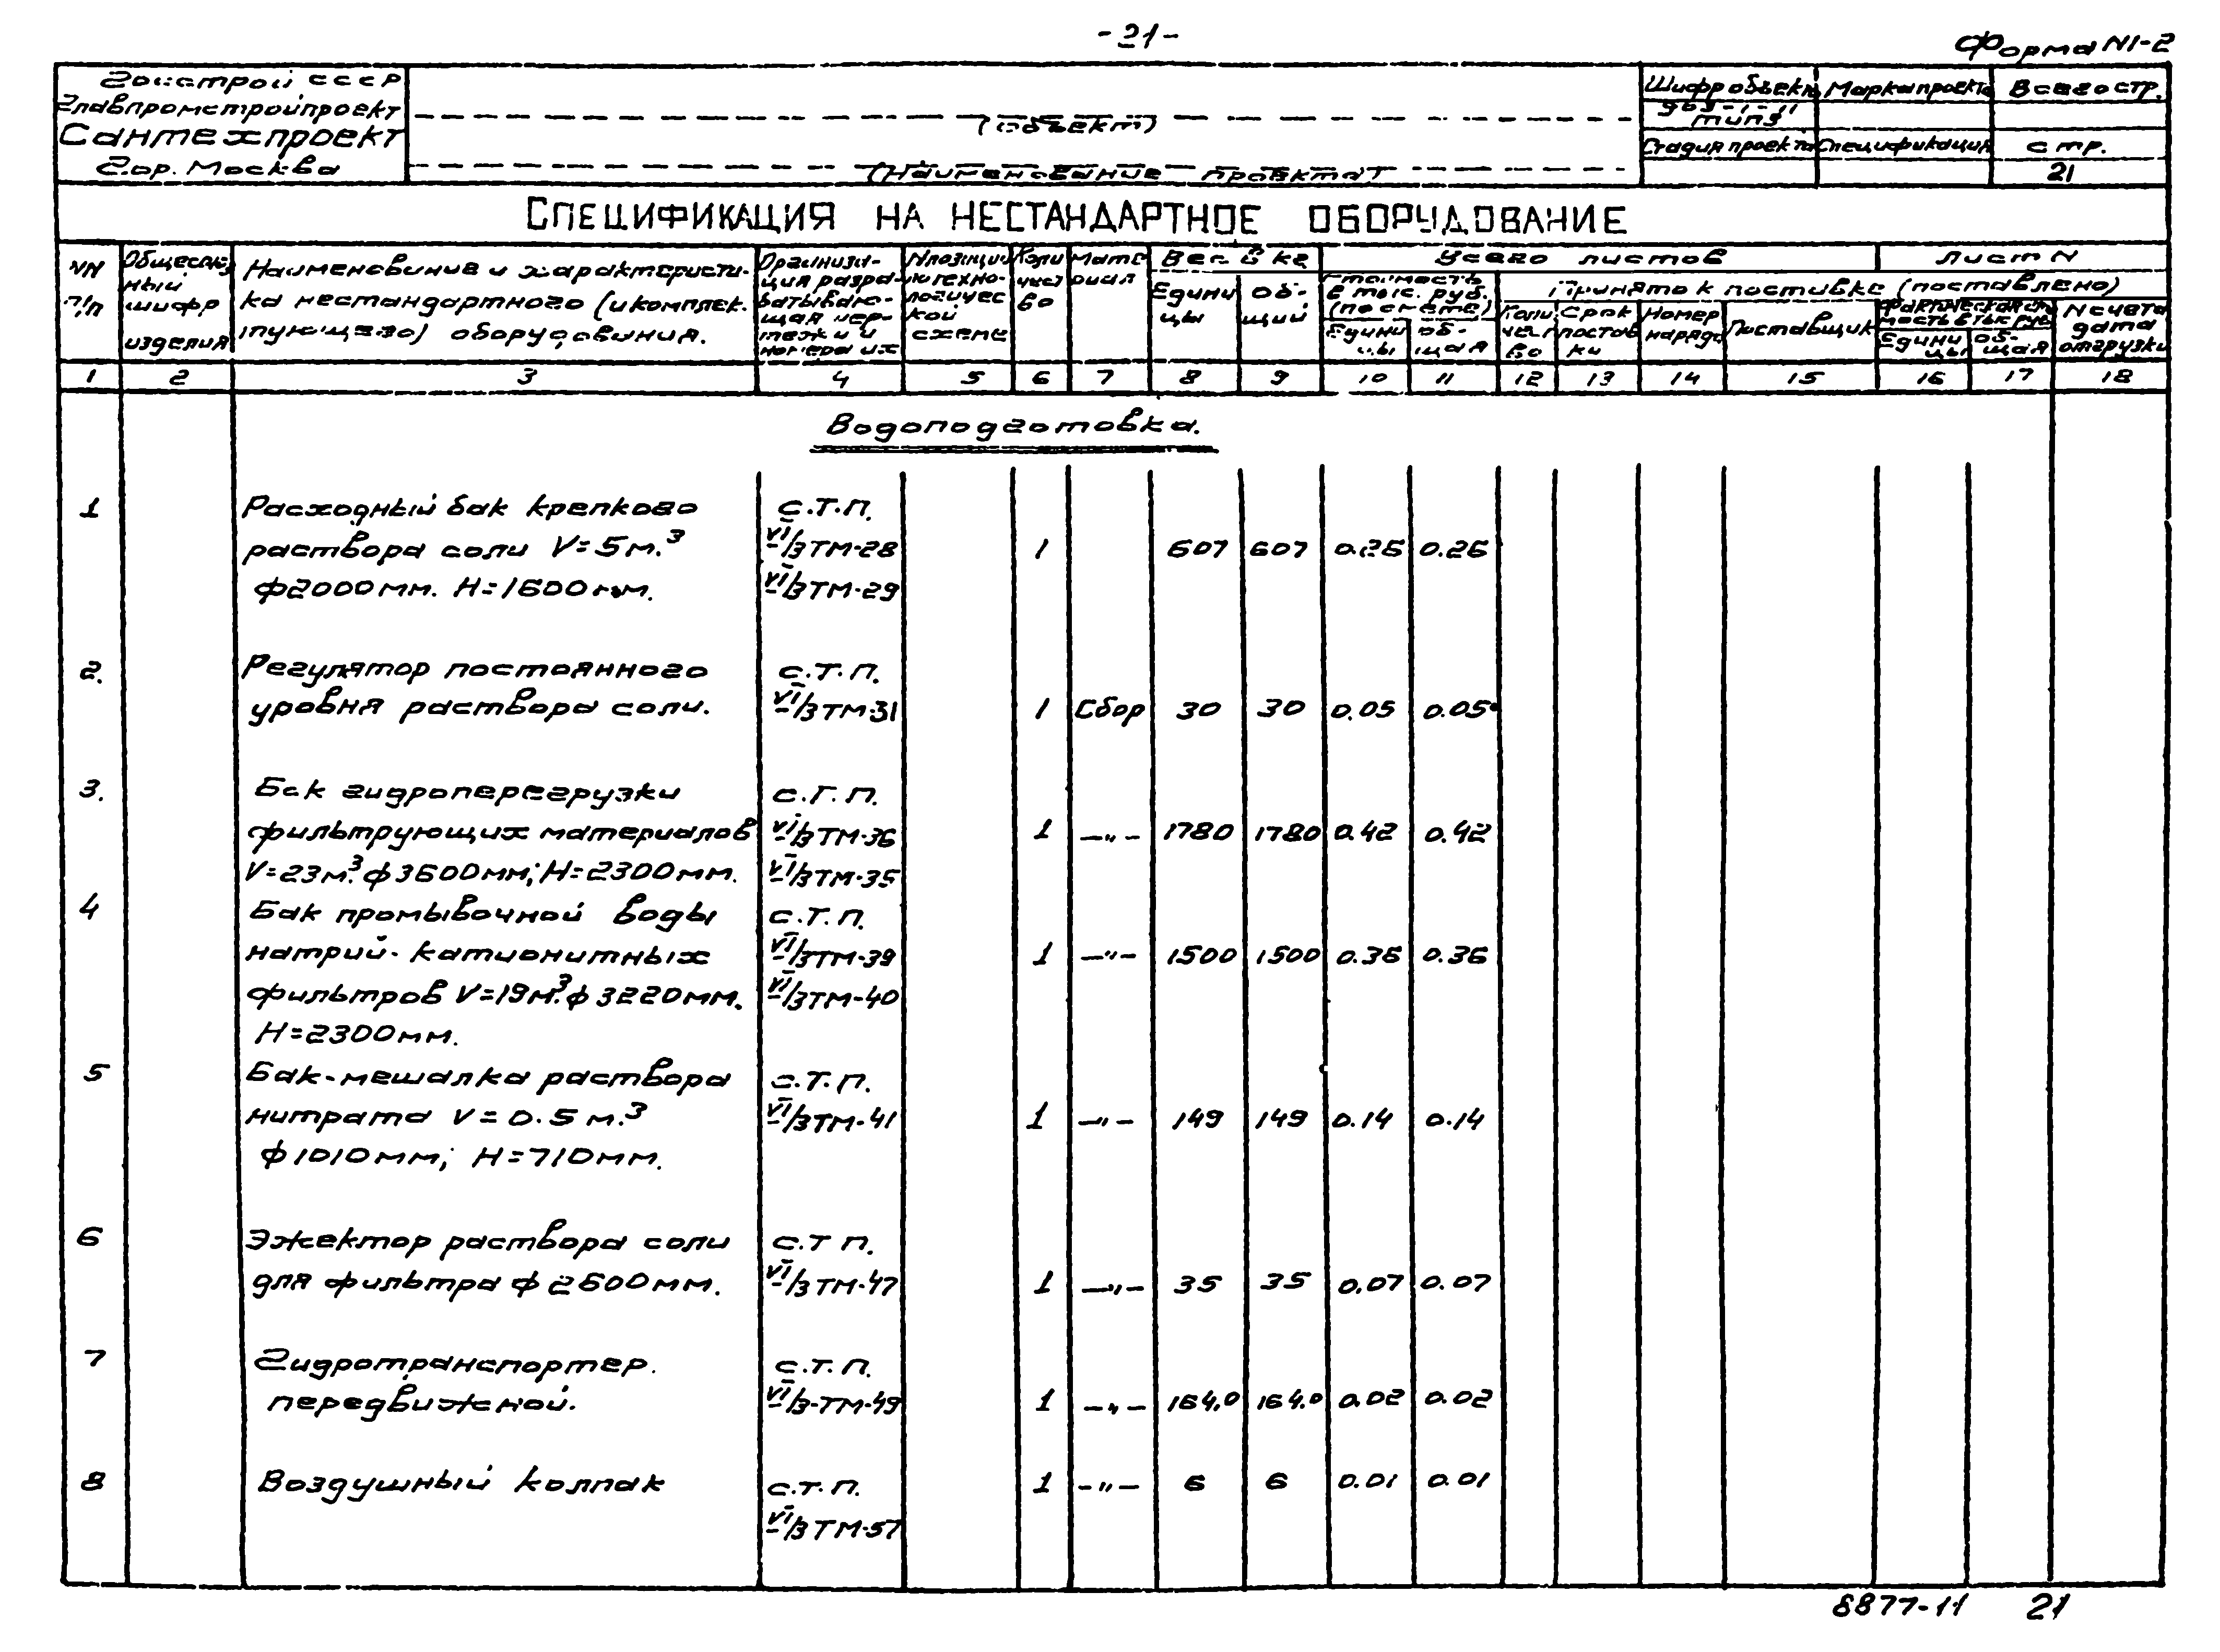 -21-
Форма N1-2
Госстрой СССР
Главпромстройпроект
Сантехпроект
Гор. Москва
(объект)
(Наименование проекта)
Шифр объекта
903-1-"
типз"
Марка проекта
Всего стр.
Стадия проекта
Спецификация
стр.
21
СПЕЦИФИКАЦИЯ НА НЕСТАНДАРТНОЕ ОБОРУДОВАНИЕ
NN п/п
Общесоюзный шифр изделия
Наименование и характеристика нестандартного (и комплектующего) оборудования.
Организация разрабатывающая чертежи и номера их
N позиции по технологической схеме
Количество
Материал
Вес в кг
Единицы
Общий
Всего листов
Лист N
Стоимость в тыс. руб. (по смете)
Единицы
Общая
Принято к поставке (поставлено)
Количество
Срок поставки
Номер наряда
Поставщик
Фактическая стоимость в тыс. руб.
Единицы
Общая
N счета дата отгрузки
1 2 3 4 5 6 7 8 9 10 11 12 13 14 15 16 17 18
Водоподготовка.
1 Расходный бак крепкого С.Т.П.
раствора соли V=5м.³ VI/3ТМ-28 1 607 607 0.26 0.26
ф2000мм. H=1600мм. VI/3ТМ-29
2. Регулятор постоянного С.Т.П.
уровня раствора соли. VI/3ТМ-31 1 Сбор 30 30 0.05 0.05
3. Бак гидроперегрузки С.Т.П.
фильтрующих материалов VI/3ТМ-36 1 —"— 1780 1780 0.42 0.42
V=23м³. ф3600мм; H=2300мм. VI/3ТМ-35
4 Бак промывочной воды С.Т.П.
натрий-катионитных VI/3ТМ-39 1 —"— 1500 1500 0.36 0.36
фильтров V=19м³. ф3220мм. VI/3ТМ-40
H=2300мм.
5 Бак-мешалка раствора С.Т.П.
нитрата V=0.5м.³ VI/3ТМ-41 1 —"— 149 149 0.14 0.14
ф1010мм; H=710мм.
6 Эжектор раствора соли С.Т П.
для фильтра ф2600мм. VI/3ТМ-47 1 —"— 35 35 0.07 0.07
7 Гидротранспортер. С.Т.П.
передвижной. VI/3-ТМ-49 1 —"— 164,0 164.0 0.02 0.02
8 Воздушный колпак С.Т.П. 1 -"— 6 6 0.01 0.01
VI/3ТМ-57
8877-11 21